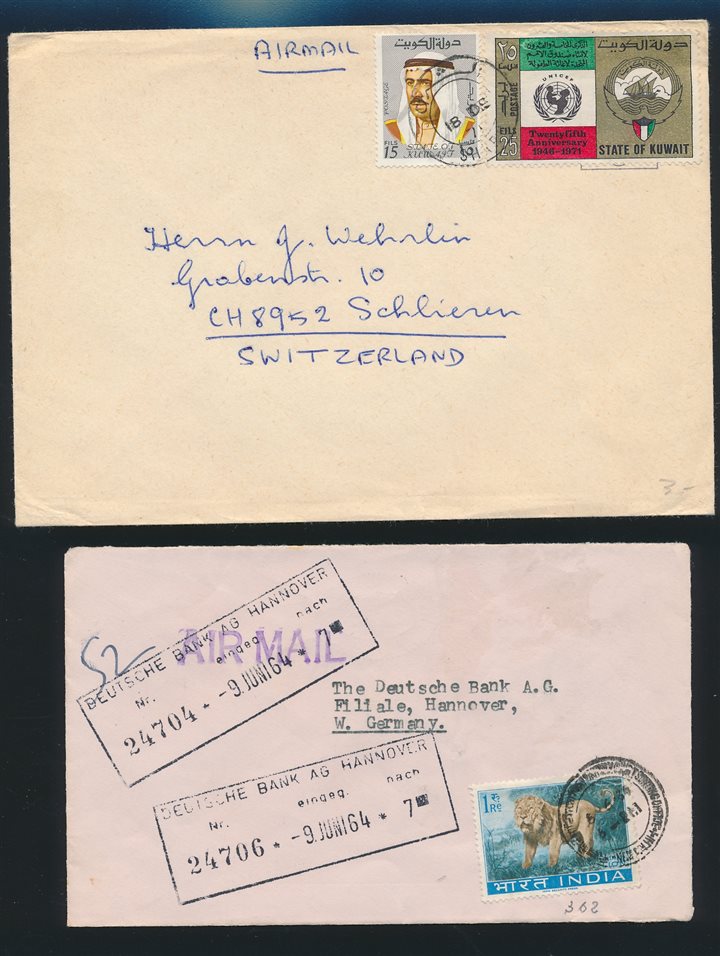 AIRMAIL
دولة الكويت
POSTAGE
FILS
15
STATE OF
KUWAIT
18
٢٥
فلس
دولة الكويت
UNICEF
POSTAGE
FILS
25
Twentyfifth
Anniversary
1946-1971
STATE OF KUWAIT
Herrn J. Wehrlin
Grabenstr. 10
CH8952 Schlieren
SWITZERLAND
3-
52-
AIR MAIL
DEUTSCHE BANK AG HANNOVER
Nr. eingeg. nach
24704 * -9. JUNI 64 * 7
The Deutsche Bank A.G.
Filiale, Hannover,
W. Germany.
DEUTSCHE BANK AG HANNOVER
Nr. eingeg. nach
24706 * -9. JUNI 64 * 7
1 रु
Re
भारत INDIA
362